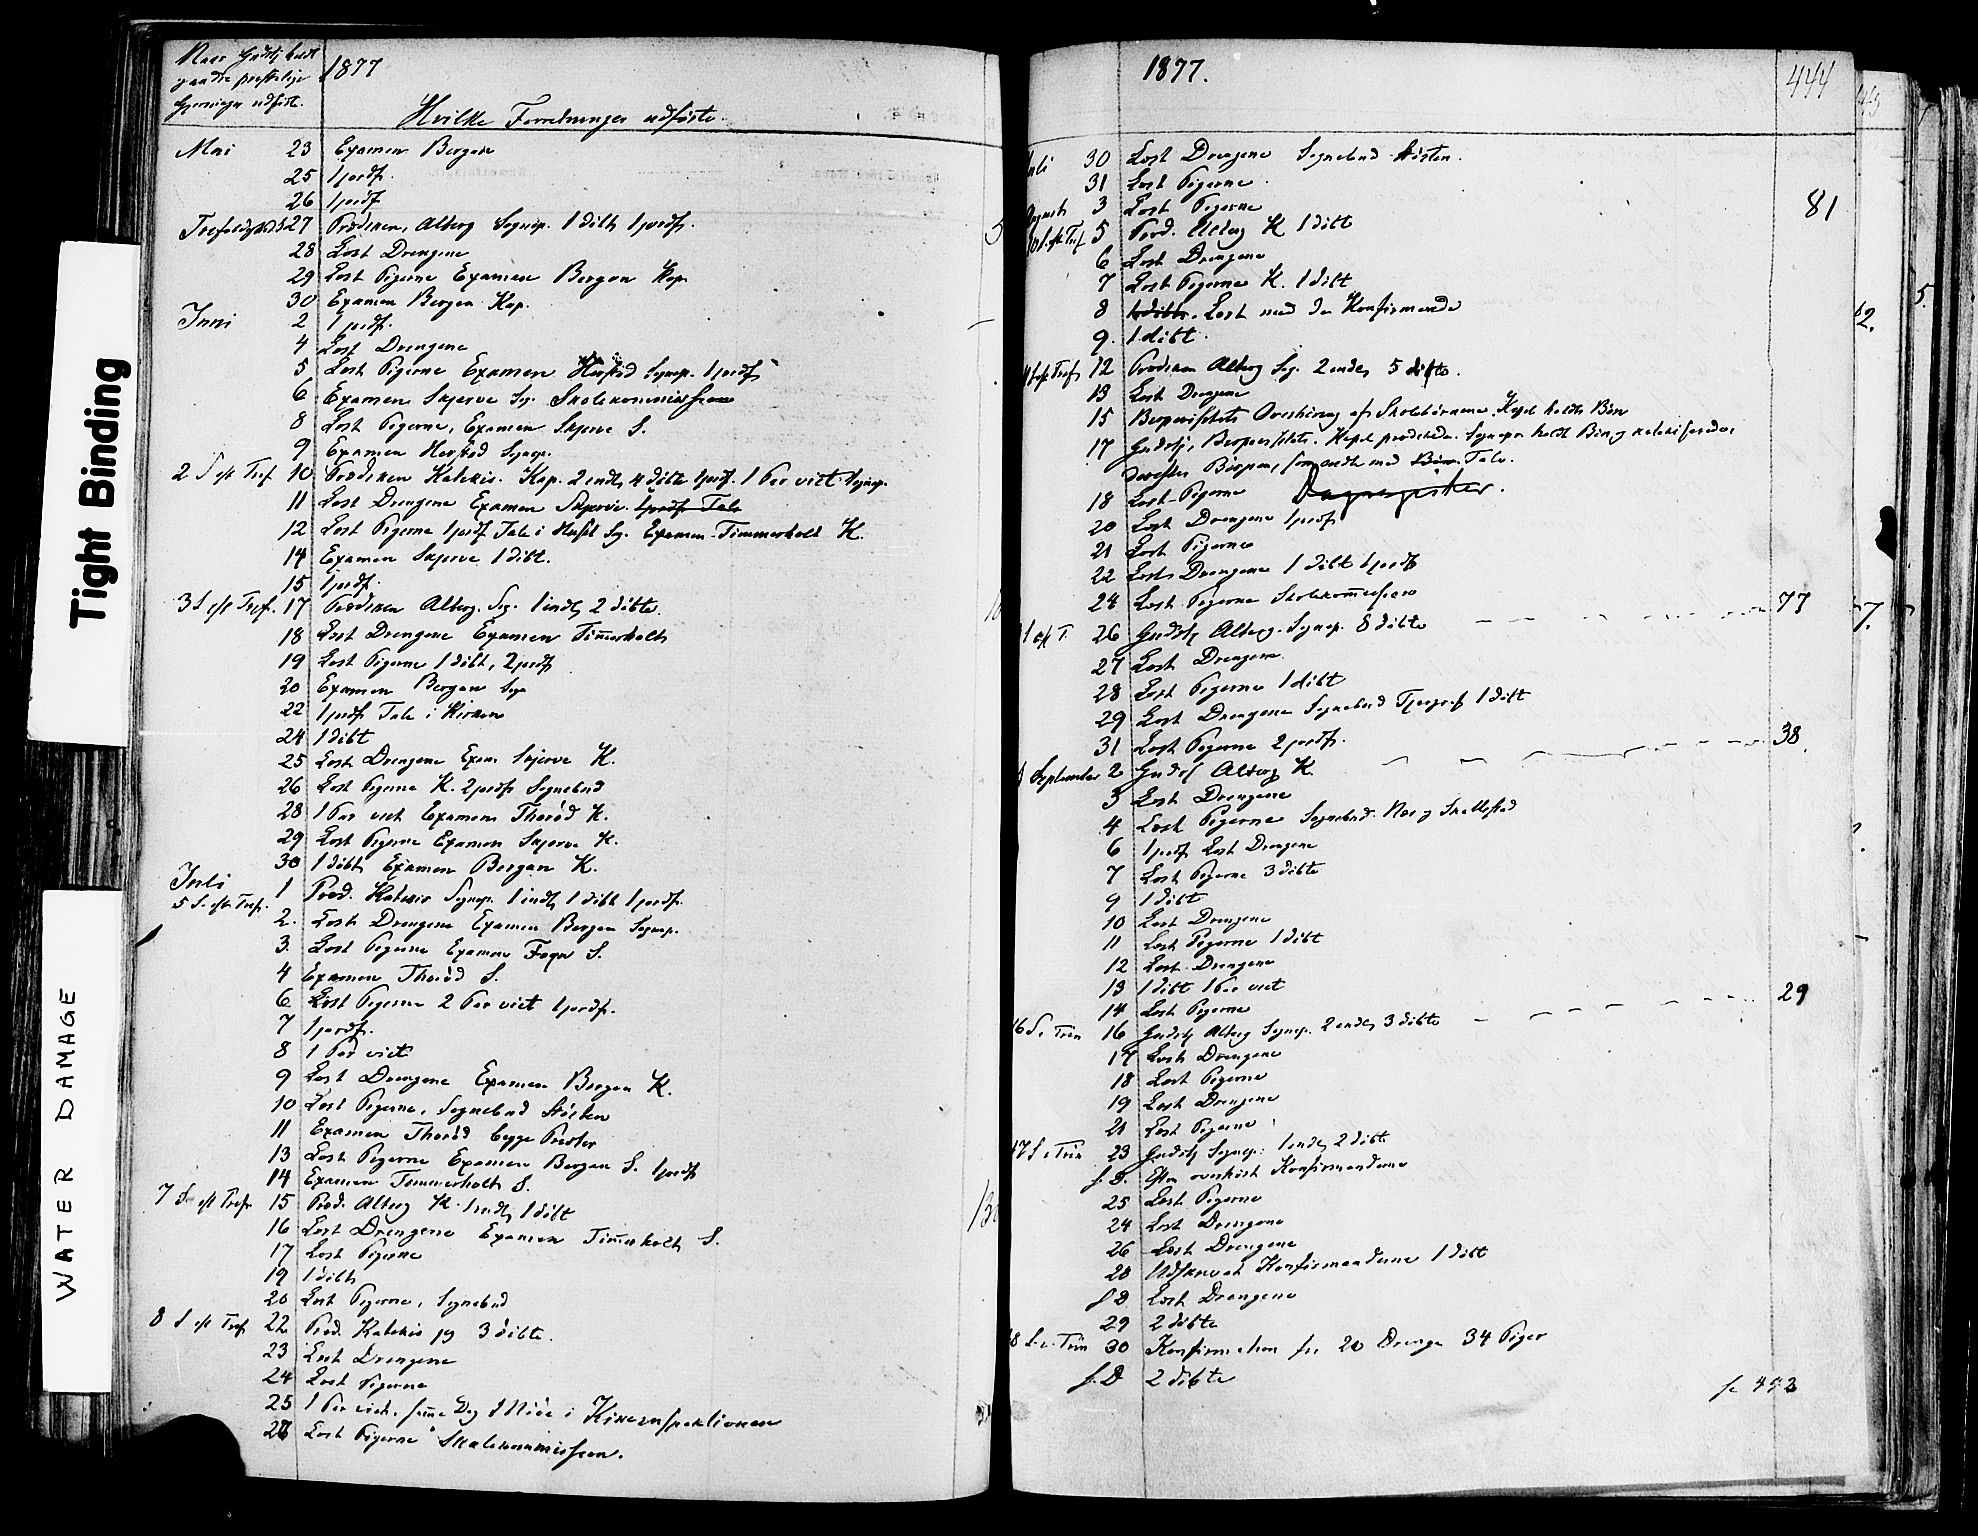 Tight Binding
WATER DAMAGE
Naar
1877
Hvilke Forretninger udførte.
Mai 23 Examen Bergan
25 1 jordf.
26 1 jordf
27 Prædiken, Altberg Sognep. 1 døbt, 1 jordf.
28 Læst Drengene
29 Læst Pigerne Examen Bergan Kap
30 Examen Bergan Kap.
Juni 2 1 jordf.
4 Læst Drengene
5 Læst Pigerne Examen Herstad Sognep. 1 jordf
6 Examen Skjerve Sg. Skolekommission
8 Læst Pigerne, Examen Skjerve S.
9 Examen Herstad Sognep.
2 S eft Tref 10 Prædiken Katekis. Kap. 2 indl, 4 døbte 1 jordf. 1 Par viet Sognep.
11 Læst Drengene Examen Skjerve. 1 jordf Tale
12 Læst Pigerne 1 jordf Tale i Huset Sg. Examen Timmerholt K.
14 Examen Skjerve 1 døbt.
15 1 jordf.
3 S eft Tref. 17 Prædiken Altberg. Sg. 1 indl, 2 døbte.
18 Læst Drengene Examen Tim̄erholt
19 Læst Pigerne 1 døbt, 2 jordf
20 Examen Bergan Sgn
22 1 jordf Tale i Kirken
24 1 døbt
25 Læst Drengene Exam. Skjerve K.
26 Læst Pigerne K. 2 jordf Sognebud
28 1 Par viet Examen Thorød K.
29 Læst Pigerne Examen Skjerve K.
30 1 døbt, Examen Bergan K.
Juli 1 Præd. Katekis Sognep. 1 indl, 1 døbt 1 jordf.
5 S. eft Tref.
2. Læst Drengene Examen Bergan Sognep.
3. Læst Pigerne Examen Fegn S.
4 Examen Thorød S.
6 Læst Pigerne 2 Par viet 1 jordf.
7 1 jordf.
8 1 Par viet
9 Læst Drengene Examen Bergan K.
10 Læst Pigerne, Sognebud Støtten
11 Examen Thorød begge Prester
13 Læst Pigerne Examen Bergan S. 1 jordf
14 Examen Timmerholt S.
7 S eft Tref 15 Præd. Altberg K. 1 indl, 1 døbt
16 Læst Drengene Examen Tim̄erholt S.
17 Læst Pigerne
19 1 døbt
20 Læst Pigerne, Sognebud
8 S eft Tref 22 Præd. Katekis pg 3 døbte.
23 Læst Drengene
24 Læst Pigerne
25 1 Par viet. sam̄e Dag Møde i Kirkeinspektionen
28 Læst Pigerne Skolekommission.
1877. 444
Juli 30 Læst Drengene Sognebud Støtten.
31 Læst Pigerne
August 3 Læst Pigerne 81
5 Præd. Altberg K 1 døbt
6 Læst Drengene
7 Læst Pigerne K. 1 døbt
8 1 døbt. Læst med de Konfirmerede
9. 1 døbt.
12 Prædiken Altberg Sg. 2 indl, 5 døbte.
13 Læst Drengene
15 Bispevisitats Overhøring af Skolebørnene. Kapel holdt Bøn
17 Gudstj, Bispevisitats. Kapel prædikede. Sognepr holdt Bøn og katekiserede,
derefter Bispen, som endte med Bøn Tale.
18 Læst Pigerne
20 Læst Drengene 1 jordf
21 Læst Pigerne
22 Læst Drengene 1 døbt 1 jordf
24 Læst Pigerne Skolekom̄ission 77
26 Gudstj Altberg. Sognep. 8 døbte
27 Læst Drengene.
28 Læst Pigerne 1 døbt
29 Læst Drengene Sognebud 1 døbt
31 Læst Pigerne 2 jordf. 38
September 2 Gudstj Altberg K.
3 Læst Drengene
4 Læst Pigerne Sognebud Nes og Skallestad
6 1 jordf Læst Drengene
7 Læst Pigerne 3 døbte
9 1 døbt
10 Læst Drengene
11 Læst Pigerne 1 døbt
12 Læst Drengene
13 1 døbt 1 Par viet
14 Læst Pigerne 29
16 S. e Trin 16 Gudstj Altberg Sognep. 2 indl, 3 døbte
17 Læst Drengene
18 Læst Pigerne
19 Læst Drengene
21 Læst Pigerne
17 S e Trin 23 Gudstj Sognep: 1 indl, 2 døbt
s. D. Eftm overhørt Konfirmanderne
25 Læst Pigerne
24 Læst Drengene
26 Læst Drengene
28 Udskrevet Konfirmanderne 1 døbt
s D Læst Drengene
29 2 døbte
18 S. e. Trin 30 Konfirmation for 20 Drenge 34 Piger
s. D 2 døbte